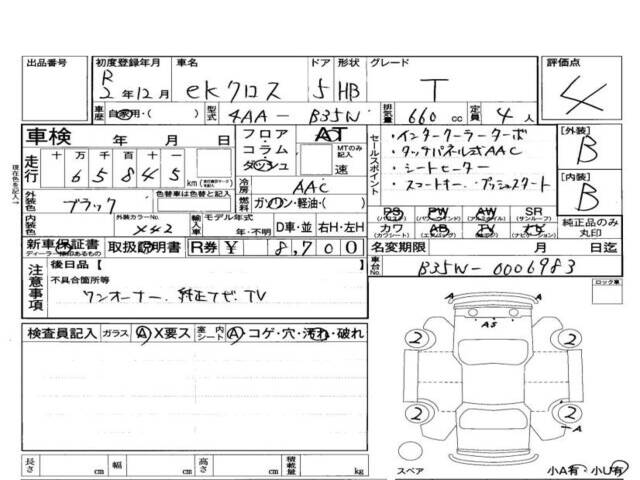 出品番号 初度登録年月 車名 ドア 形状 グレード 評価点
R 2年12月 ekクロス 5 HB T 4
車歴 自家用・( ) 型式 4AA-B35W 排気量 660 cc 定員 4人
車検 年 月 日 フロア AT
コラム MTのみ記入
ダッシュ 速
走行 十万千百十一
6 5 8 4 5 km
セールスポイント
・インタークーラーターボ
・タッチパネル式AAC
・シートヒーター
・スマートキー プッシュスタート
[外装] B
[内装] B
外装色 ブラック 色替車は色替と記入
冷房 AAC
燃料 ガソリン・軽油・( )
PS PW AW SR
(パワステ) (パワーウインド) (アルミホイル) (サンルーフ)
カワ AB TV ナビ
(カワシート) (エアバッグ) (テレビ) (ナビゲーション)
純正品のみ丸印
内装色 外装カラーNo. X42 輸入車 モデル年式 年・不明 D車・並 右H・左H
新車保証書 取扱説明書 R券 ¥ 8,700
ディーラー捺印あるもの
名変期限 月 日迄
車台No. B35W-0006983
注意事項 後日品【 】
不具合箇所等
ワンオーナー 純正ナビ.TV
ロック車
検査員記入 ガラス A X要ス 室内シート A コゲ・穴・汚れ・破れ
AS
2 2
2 2
A
長さ cm 幅 cm 高さ cm 積載量 kg
スペア 小A有・小U有